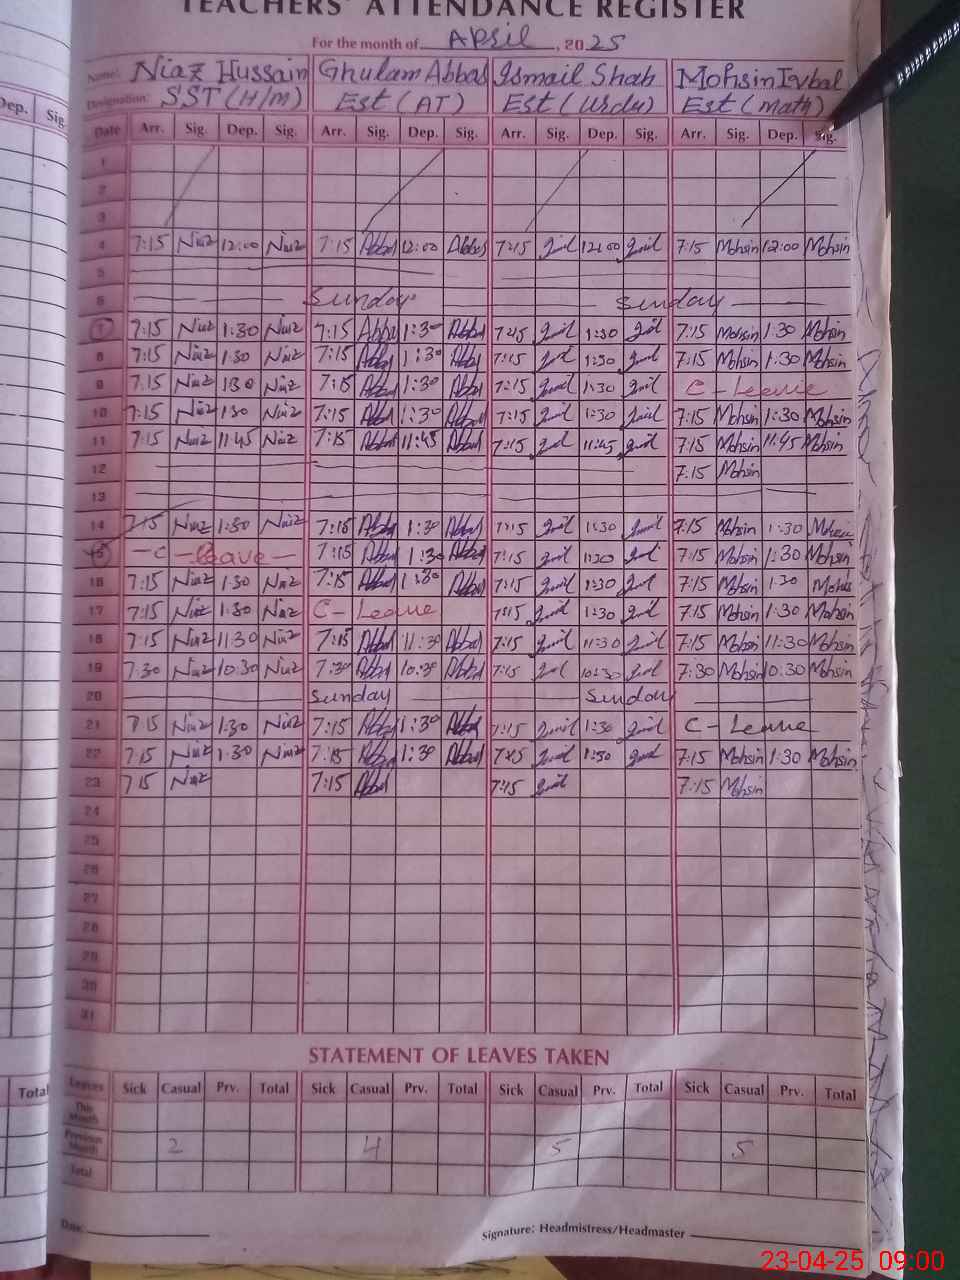 TEACHERS' ATTENDANCE REGISTER
For the month of April, 2025
Name: Niaz Hussain Ghulam Abbas Ismail Shah Mohsin Iqbal
Designation: SST (H/M) Est (AT) Est (Urdu) Est (Math)
Dep. Sig. Date Arr. Sig. Dep. Sig. Arr. Sig. Dep. Sig. Arr. Sig. Dep. Sig. Arr. Sig. Dep. Sig.
1
2
3
4 7:15 Niaz 12:00 Niaz 7:15 Abbas 12:00 Abbas 7:15 12:00 7:15 Mohsin 12:00 Mohsin
5
6 Sunday Sunday
7 7:15 Niaz 1:30 Niaz 7:15 Abbas 1:30 Abbas 7:15 1:30 7:15 Mohsin 1:30 Mohsin
8 7:15 Niaz 1:30 Niaz 7:15 Abbas 1:30 Abbas 7:15 1:30 7:15 Mohsin 1:30 Mohsin
9 7:15 Niaz 1:30 Niaz 7:15 Abbas 1:30 Abbas 7:15 1:30 C - Leave
10 7:15 Niaz 1:30 Niaz 7:15 Abbas 1:30 Abbas 7:15 1:30 7:15 Mohsin 1:30 Mohsin
11 7:15 Niaz 11:45 Niaz 7:15 Abbas 11:45 Abbas 7:15 11:45 7:15 Mohsin 11:45 Mohsin
12 7:15 Mohsin
13
14 7:15 Niaz 1:30 Niaz 7:15 Abbas 1:30 Abbas 7:15 1:30 7:15 Mohsin 1:30 Mohsin
15 - C - Leave - 7:15 Abbas 1:30 Abbas 7:15 1:30 7:15 Mohsin 1:30 Mohsin
16 7:15 Niaz 1:30 Niaz 7:15 Abbas 1:30 Abbas 7:15 1:30 7:15 Mohsin 1:30 Mohsin
17 7:15 Niaz 1:30 Niaz C - Leave 7:15 1:30 7:15 Mohsin 1:30 Mohsin
18 7:15 Niaz 11:30 Niaz 7:15 Abbas 11:30 Abbas 7:15 11:30 7:15 Mohsin 11:30 Mohsin
19 7:30 Niaz 10:30 Niaz 7:30 Abbas 10:30 Abbas 7:15 10:30 7:30 Mohsin 10:30 Mohsin
20 Sunday Sunday
21 7:15 Niaz 1:30 Niaz 7:15 Abbas 1:30 Abbas 7:15 1:30 C - Leave
22 7:15 Niaz 1:30 Niaz 7:15 Abbas 1:30 Abbas 7:15 1:30 7:15 Mohsin 1:30 Mohsin
23 7:15 Niaz 7:15 Abbas 7:15 7:15 Mohsin
24
25
26
27
28
29
30
31
STATEMENT OF LEAVES TAKEN
Total Leaves Sick Casual Prv. Total Sick Casual Prv. Total Sick Casual Prv. Total Sick Casual Prv. Total
This Month
Previous Month 2 4 5 5
Total
Date: Signature: Headmistress/Headmaster
23-04-25 09:00